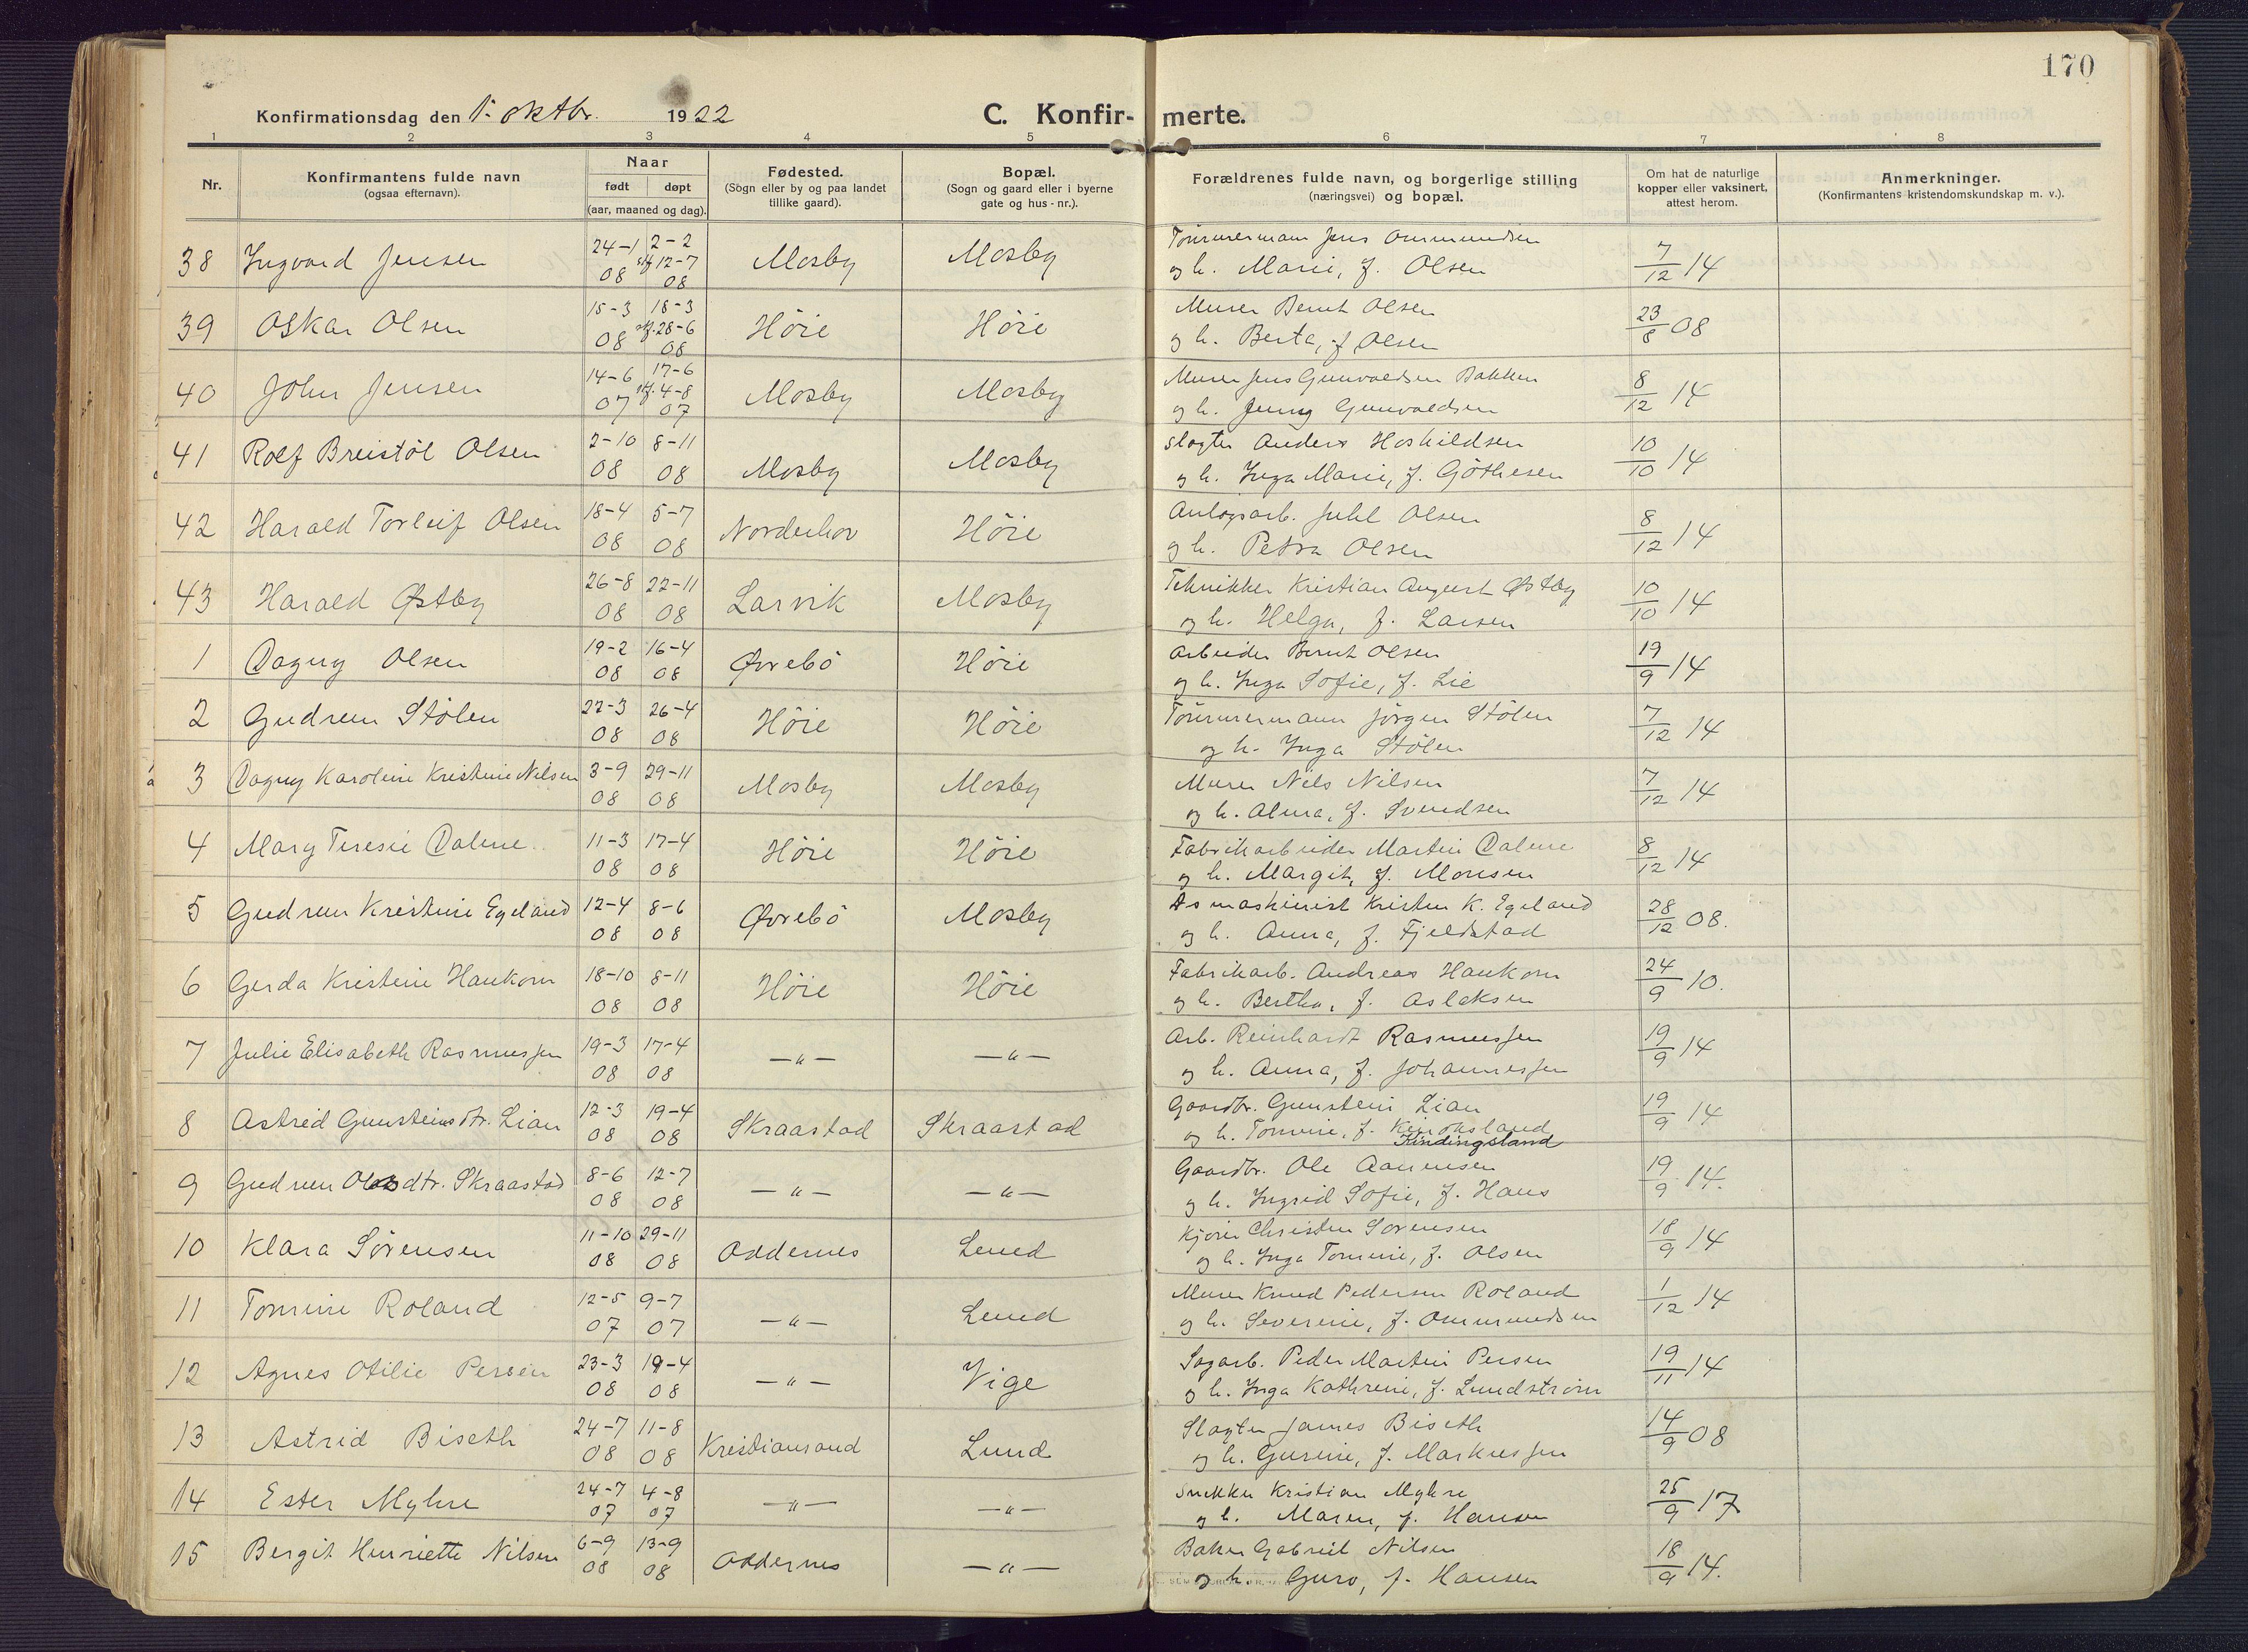 170
Konfirmationsdag den 1. oktbr. 1922
C. Konfirmerte.
1 2 3 4 5 6 7 8
Nr.
Konfirmantens fulde navn
(ogsaa efternavn).
Naar
født døpt
(aar, maaned og dag).
Fødested.
(Sogn eller by og paa landet
tillike gaard).
Bopæl.
(Sogn og gaard eller i byerne
gate og hus-nr.).
Forældrenes fulde navn, og borgerlige stilling
(næringsvei) og bopæl.
Om hat de naturlige
kopper eller vaksinert,
attest herom.
Anmerkninger.
(Konfirmantens kristendomskundskap m. v.).
38 Ingvard Jensen 24-1 08 2-2 stf 12-7 08 Mosby Mosby Tömmermann Jens Ommundsen
og h. Marie, f. Olsen 7/12 14
39 Oskar Olsen 15-3 08 18-3 stf. 28-6 08 Höie Höie Murer Bernt Olsen
og h. Berta, f. Olsen 23/8 08
40 John Jensen 14-6 07 17-6 stf. 4-8 07 Mosby Mosby Murer Jens Gunvaldsen Bakken
og h. Jenny Gunvaldsen 8/12 14
41 Rolf Breistöl Olsen 2-10 08 8-11 08 Mosby Mosby Slagter Anders Hoskildsen
og h. Inga Marie, f. Göthesen 10/10 14
42 Harald Torleif Olsen 18-4 08 5-7 08 Norderhov Höie Anlægsarb. Juhl Olsen
og h. Petra Olsen 8/12 14
43 Harald Østby 26-8 08 22-11 08 Larvik Mosby Teknikker Kristian August Østby
og h. Helga, f. Larsen 10/10 14
1 Dagny Olsen 19-2 08 16-4 08 Øvrebö Höie Arbeider Bernt Olsen
og h. Inga Sofie, f. Lie 19/9 14
2 Gudrun Stölen 22-3 08 26-4 08 Höie Höie Tömmermann Jörgen Stölen
og h. Inga Stölen 7/12 14
3 Dagny Karoline Kristine Nilsen 3-9 08 29-11 08 Mosby Mosby Murer Nils Nilsen
og h. Alma, f. Svendsen 7/12 14
4 Mary Teresie Dalene 11-3 08 17-4 08 Höie Höie Fabrikarbeider Martin Dalene
og h. Margit, f. Monsen 8/12 14
5 Gudrun Kristine Egeland 12-4 08 8-6 08 Øvrebö Mosby As maskinist Kristen K. Egeland
og h. Anna, f. Fjeldstad 28/12 08.
6 Gerda Kristine Haukom 18-10 08 8-11 08 Höie Höie Fabrikarb. Andreas Haukom
og h. Bertha, f. Aslaksen 24/9 10.
7 Julie Elisabeth Rasmussen 19-3 08 17-4 08 —"— —"— Arb. Reinhardt Rasmussen
og h. Anna, f. Johannessen 19/9 14
8 Astrid Gunsteinsdtr. Lian 12-3 08 19-4 08 Skraastad Skraastad Gaardbr. Gunstein Lian
og h. Tomine, f.
Kindingsland 19/9 14
9 Gudrun Olasdtr. Skraastad 8-6 08 12-7 08 —"— —"— Gaardbr. Ole Aanensen
og h. Ingrid Sofie, f. Haus 19/9 14.
10 Klara Sörensen 11-10 08 29-11 08 Oddernes Lund Kjörer Christen Sörensen
og h. Inga Tomine, f. Olsen 18/9 14
11 Tomine Roland 12-5 07 9-7 07 —"— Lund Murer Knud Pedersen Roland
og h. Severine, f. Ommundsen 1/12 14
12 Agnes Otilie Persen 23-3 08 19-4 08 —"— Vige Sagarb. Peder Martin Persen
og h. Inga Kathrine, f. Lundström 19/11 14
13 Astrid Biseth 24-7 08 11-8 08 Kristiansand Lund Slagter James Biseth
og h. Gurine, f. Markussen 14/9 08
14 Ester Myhre 24-7 07 4-8 07 —"— —"— Snekker Kristian Myhre
og h. Maren, f. Hansen 25/9 17
15 Bergit Henriette Nilsen 6-9 08 13-9 08 Oddernes —"— Baker Gabriel Nilsen
og h. Guro, f. Hansen 18/9 14.